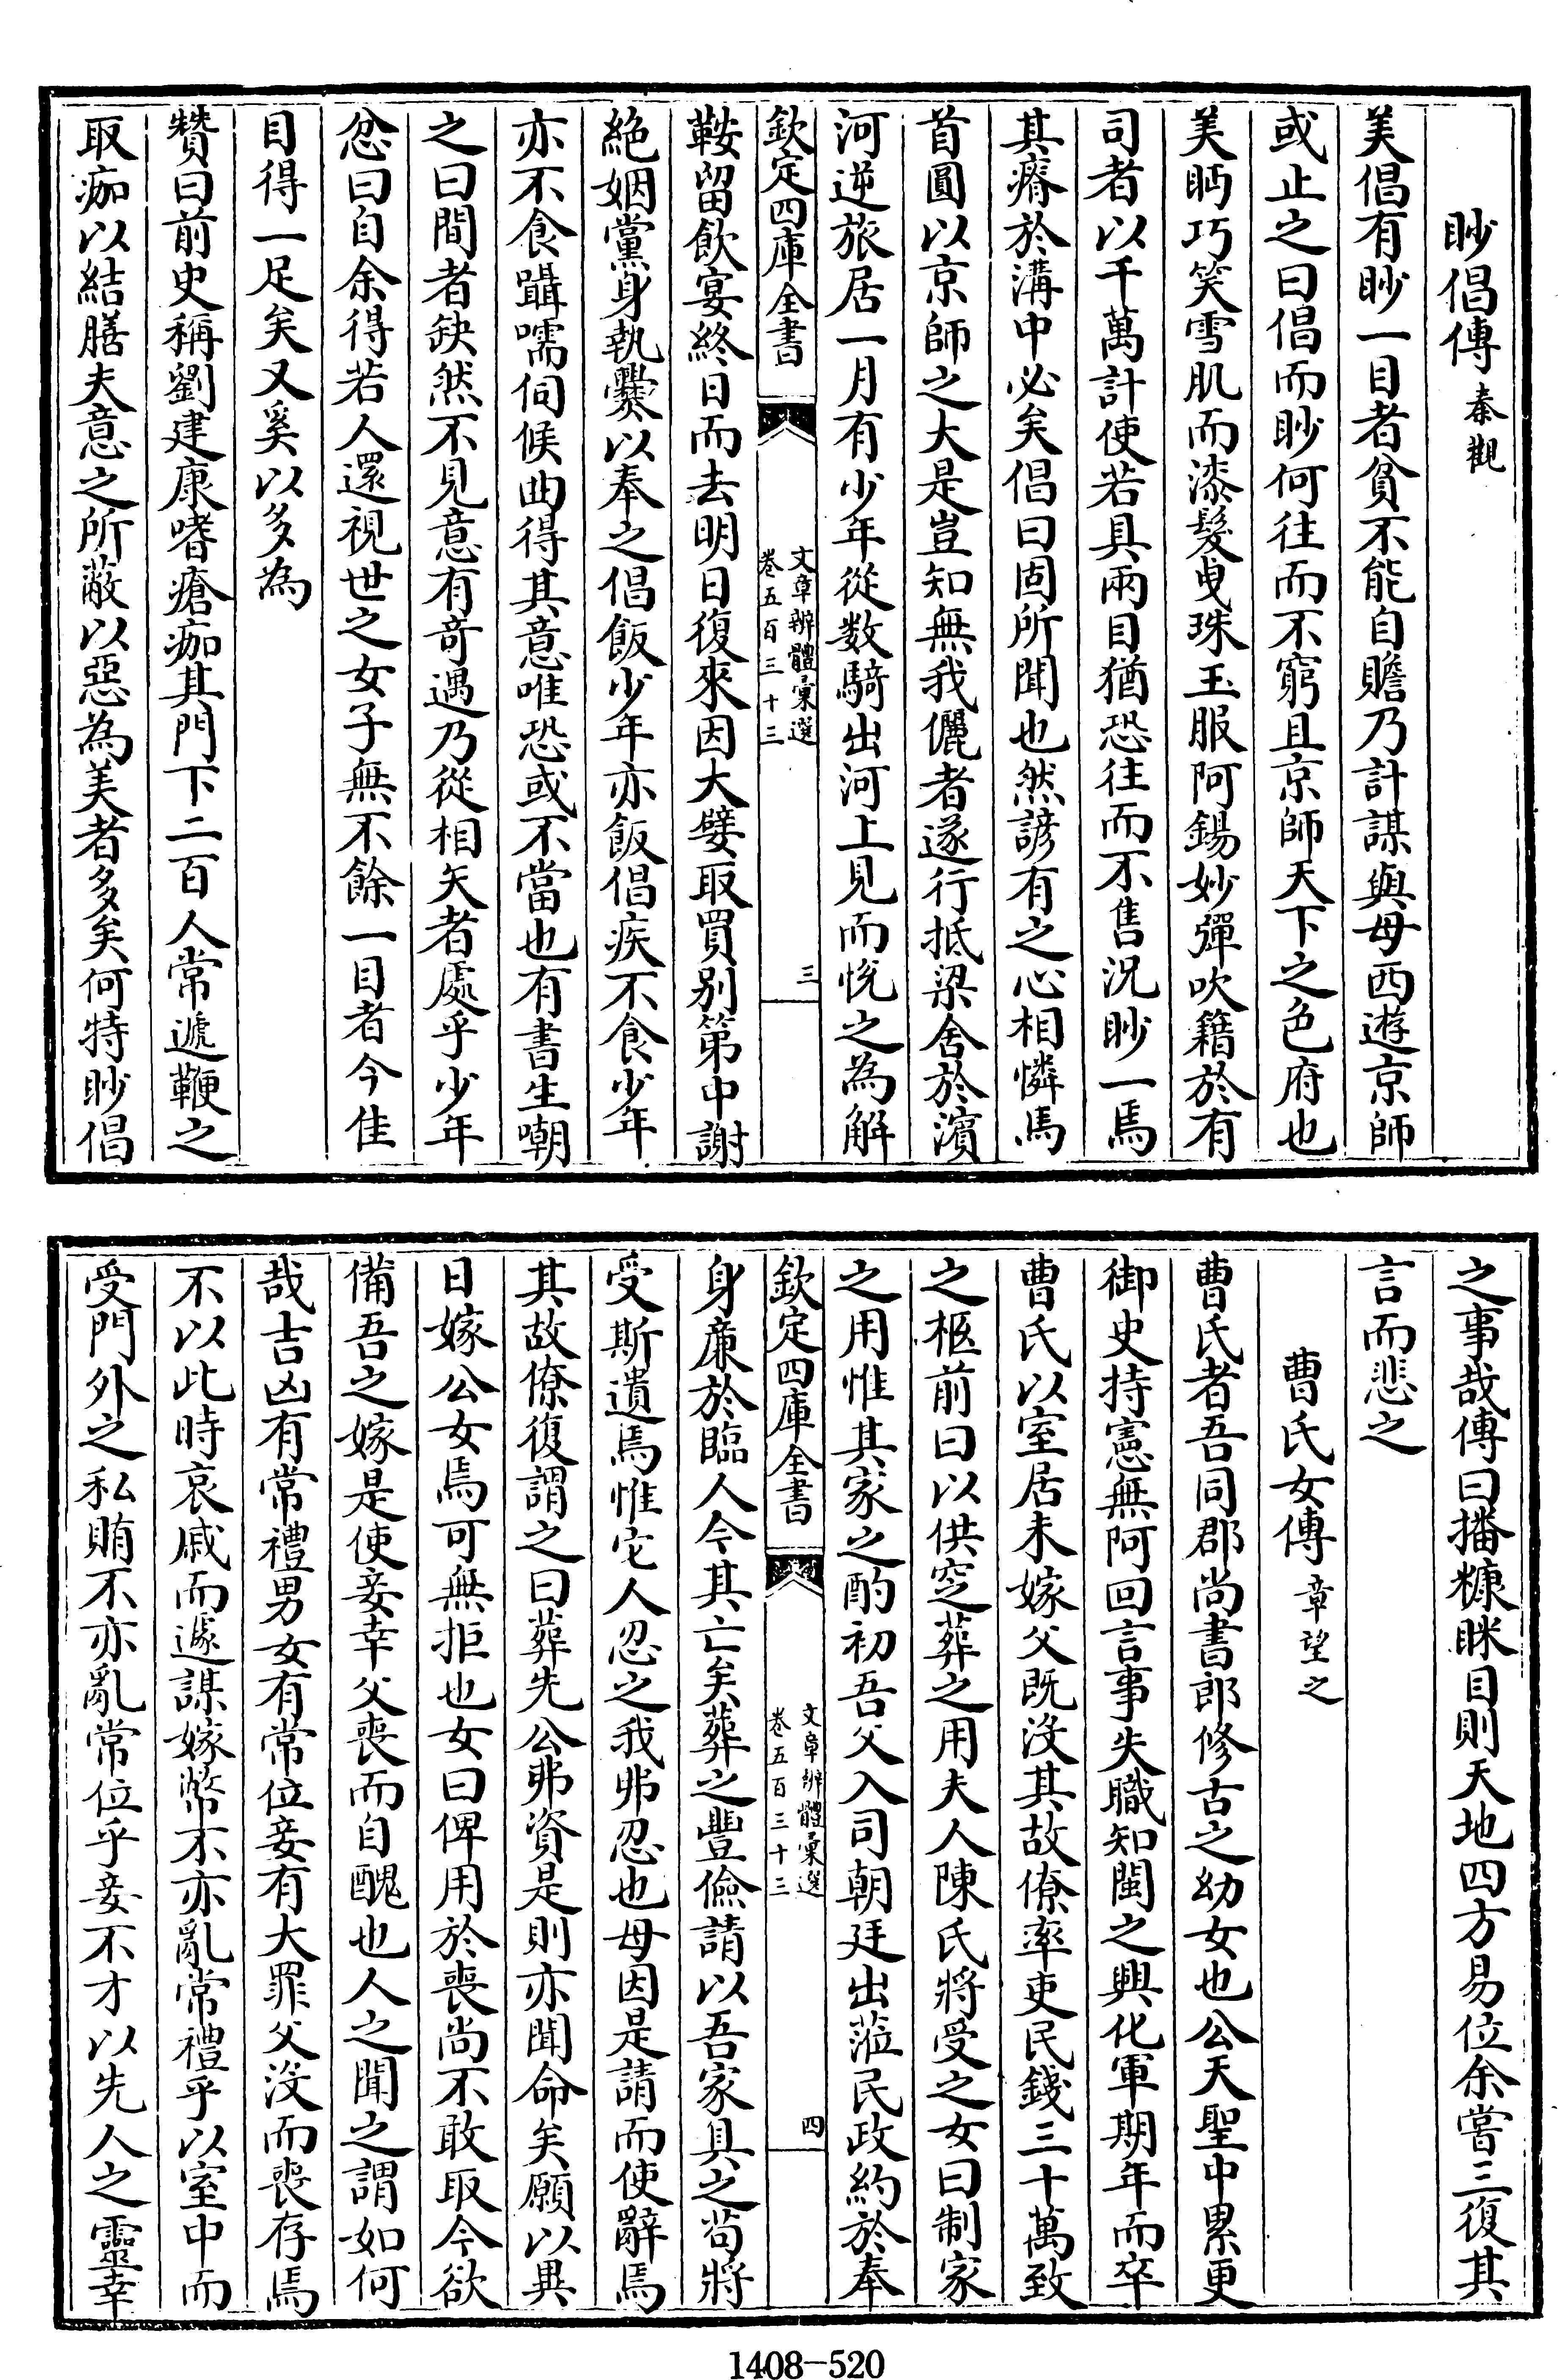 眇倡傳 秦觀
美倡有眇一目者貧不能自贍乃計謀與母西遊京師
或止之曰倡而眇何往而不窮且京師天下之色府也
美眄巧笑雪肌而漆髮曳珠玉服阿錫妙彈吹籍於有
司者以千萬計使若具兩目猶恐往而不售況眇一焉
其瘠於溝中必矣倡曰固所聞也然諺有之心相憐馬
首圓以京師之大是豈知無我儷者遂行抵梁舍於濱
河逆旅居一月有少年從数騎出河上見而悅之為解
欽定四庫全書
文章辨體彙選
卷五百三十三
三
鞍留飲宴終日而去明日復來因大嬖取買别第中謝
絶姻黨身執爨以奉之倡飯少年亦飯倡疾不食少年
亦不食躡嚅伺候曲得其意唯恐或不當也有書生嘲
之曰間者缺然不見意有奇遇乃從相矢者處乎少年
忿曰自余得若人還視世之女子無不餘一目者今佳
目得一足矣又奚以多為
贊曰前史稱劉建康嗜瘡痂其門下二百人常遞鞭之
取痂以結膳夫意之所蔽以惡為美者多矣何特眇倡
之事哉傳曰播糠眯目則天地四方易位余嘗三復其
言而悲之
曹氏女傳 章望之
曹氏者吾同郡尚書郎修古之幼女也公天聖中累更
御史持憲無阿回言事失職知閩之興化軍期年而卒
曹氏以室居未嫁父既沒其故僚率吏民錢三十萬致
之柩前曰以供窆葬之用夫人陳氏將受之女曰制家
之用惟其家之酌初吾父入司朝廷出蒞民政約於奉
欽定四庫全書
文章辨體彙選
卷五百三十三
四
身廉於臨人今其亡矣葬之豐儉請以吾家具之茍將
受斯遺焉惟它人忍之我弗忍也母因是請而使辭焉
其故僚復謂之曰葬先公弗資是則亦聞命矣願以異
日嫁公女焉可無拒也女曰俾用於喪尚不敢取今欲
備吾之嫁是使妾幸父喪而自醜也人之聞之謂如何
哉吉凶有常禮男女有常位妾有大罪父沒而喪存焉
不以此時哀戚而遽謀嫁幣不亦亂常禮乎以室中而
受門外之私賄不亦亂常位乎妾不才以先人之靈幸
1408—520